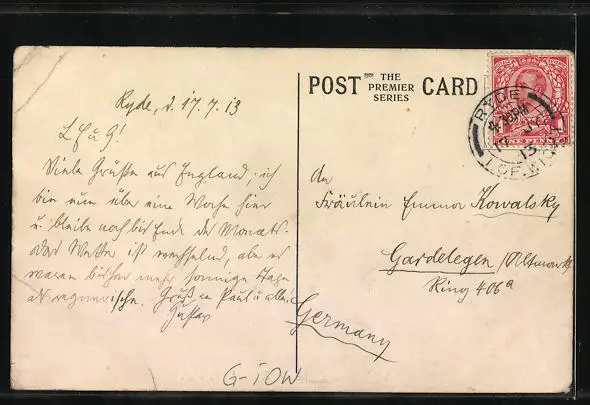 Ryde, d. 17.7.13
L E u G!
Viele Grüße aus England, ich
bin nun über eine Woche hier
u. bleibe noch bis Ende des Monats.
Das Wetter ist wechselnd, aber es
waren bisher mehr sonnige Tage
als regnerische. Gruß an Paul u. alle!
Gustav
POST CARD
THE
PREMIER
SERIES
RYDE
4.30PM
17 JY
13
I. OF. WIGHT
ONE PENNY
An
Fräulein Emma Kowalsky
Gardelegen /Altmark
Ring 406a
Germany
G-IOW